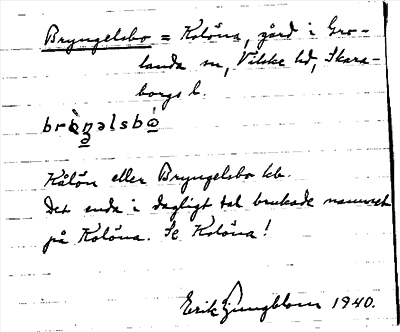 Bryngelsbo = Kolöna, gård i Gro-
landa sn, Vilske hd, Skara-
borgs l.
Kålön eller Bryngelsbo kb.
Det enda i dagligt tal brukade namnet
på Kolöna. Se Kolöna!
Erik Ljungblom 1940.